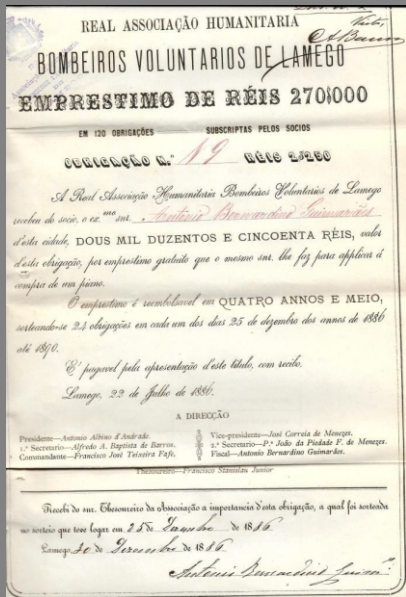 Visto,
REAL ASSOCIAÇÃO HUMANITARIA
BOMBEIROS VOLUNTARIOS DE LAMEGO
EMPRESTIMO DE RÉIS 270$000
EM 120 OBRIGAÇÕES SUBSCRIPTAS PELOS SOCIOS
OBRIGAÇÃO N.º 19 RÉIS 2$250
A Real Associação Humanitaria Bombeiros Voluntarios de Lamego
recebeu do socio, o ex.mo snr. Antonio Bernardino Guimarães
d'esta cidade, DOUS MIL DUZENTOS E CINCOENTA RÉIS, valor
d'esta obrigação, por emprestimo gratuito que o mesmo snr. lhe faz para applicar á
compra de um piano.
O emprestimo é reembolsavel em QUATRO ANNOS E MEIO,
sorteando-se 24 obrigações em cada um dos dias 25 de dezembro dos annos de 1886
até 1890.
E' pagavel pela apresentação d'este titulo, com recibo.
Lamego, 22 de Julho de 1886.
A DIRECÇÃO
Presidente—Antonio Albino d'Andrade.
1.º Secretario—Alfredo A. Baptista de Barros.
Commandante—Francisco José Teixeira Fafe.
Vice-presidente—José Correia de Menezes.
2.º Secretario—P.e João da Piedade F. de Menezes.
Fiscal—Antonio Bernardino Guimarães.
Thesoureiro—Francisco Stanislau Junior
Recebi do snr. Thesoureiro da Associação a importancia d'esta obrigação, a qual foi sorteada
no sorteio que teve logar em 25 de Dezembro de 1886
Lamego 30 de Dezembro de 1886
Antonio Bernardino Guim.es